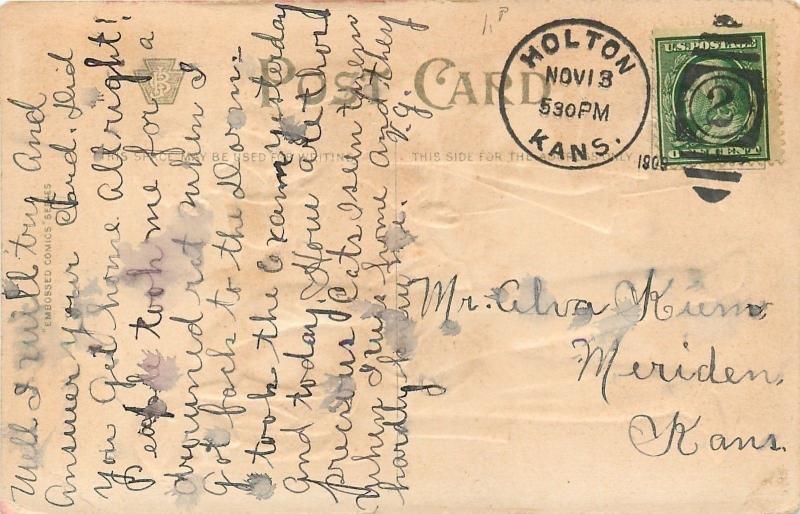 POST CARD
THIS SPACE MAY BE USED FOR WRITING
THIS SIDE FOR THE ADDRESS ONLY
"EMBOSSED COMICS" SERIES
HOLTON
NOV 13
530PM
KANS.
1909
U.S. POSTAGE
2
ONE CENT
Well I will try And
Answer your Card. Did
you get home Allright?
People took me for a
drowned rat when I
Got back to the Dorm.
I took the Exam yesterday
And today. How are those
precious Cats I seen them
when I was home and they
hardly knew me. V.G.
Mr. Alva
Meriden,
Kans.